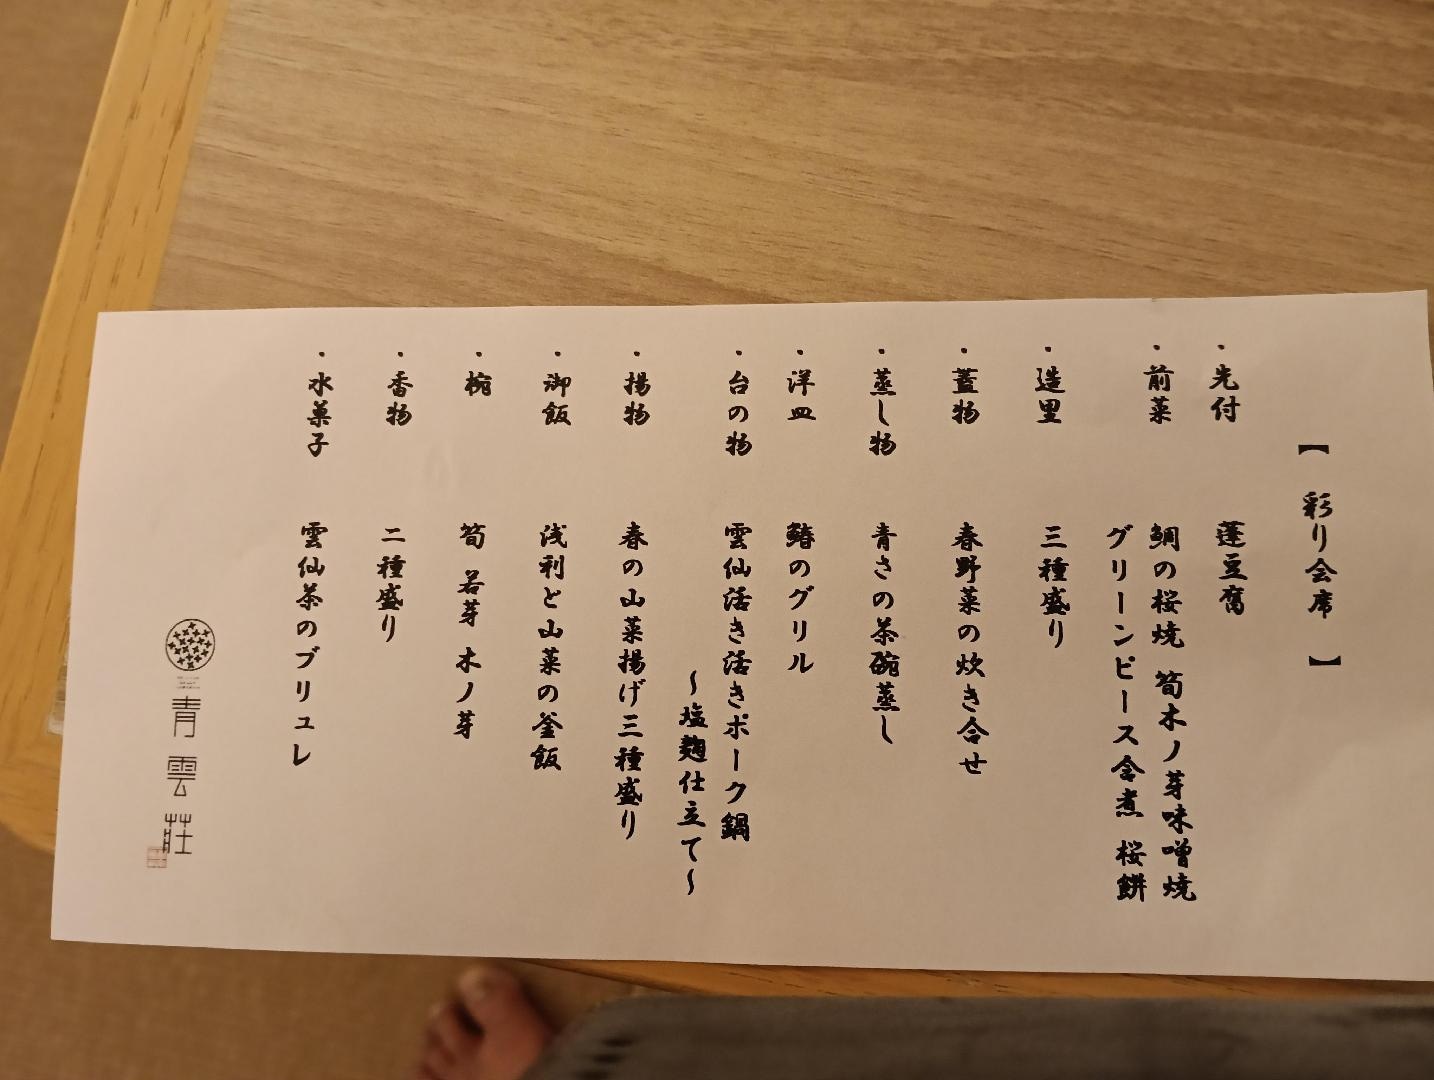 【 彩り会席 】
・先付 蓬豆腐
・前菜 鯛の桜焼 筍木ノ芽味噌焼
グリーンピース含煮 桜餅
・造里 三種盛り
・蓋物 春野菜の炊き合せ
・蒸し物 青さの茶碗蒸し
・洋皿 鰆のグリル
・台の物 雲仙活き活きポーク鍋
～塩麹仕立て～
・揚物 春の山菜揚げ三種盛り
・御飯 浅利と山菜の釜飯
・椀 筍 若芽 木ノ芽
・香物 二種盛り
・水菓子 雲仙茶のブリュレ
青雲荘